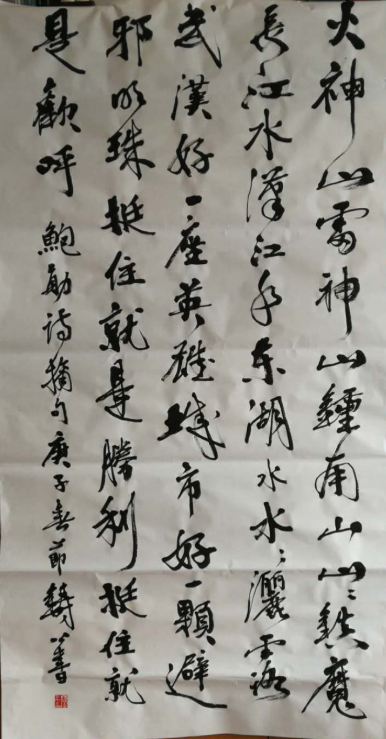 火神山雷神山鍾南山山〻鎮魔
長江水漢江水东湖水水〻灑雲路
武漢好一座英雄城市好一顆避
邪明珠挺住就是勝利挺住就
是歡呼
鮑勛诗摘句庚子春節
書